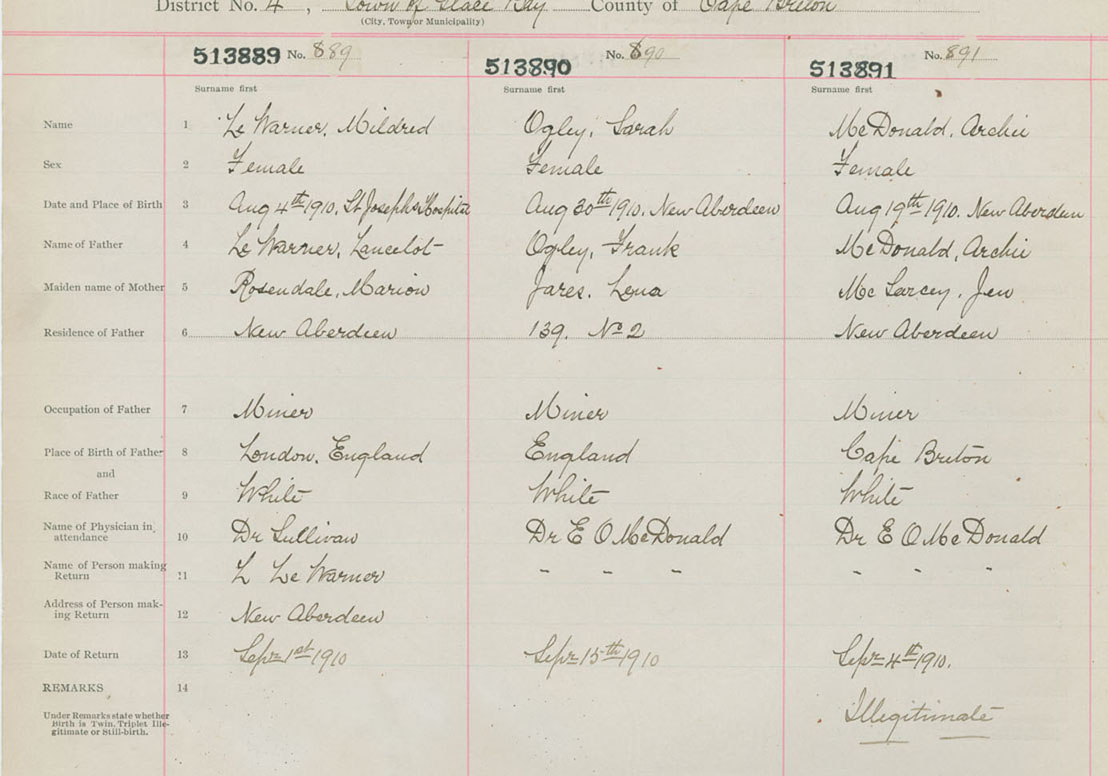 District No. 4, Town of Glace Bay County of Cape Breton
(City, Town or Municipality)
513889 No. 889 513890 No. 890 513891 No. 891
Surname first Surname first Surname first
Name 1 Le Warner, Mildred Ogley, Sarah McDonald, Archie
Sex 2 Female Female Female
Date and Place of Birth 3 Aug 4th 1910, St Josephs Hospital Aug 30th 1910. New Aberdeen Aug 19th 1910. New Aberdeen
Name of Father 4 Le Warner, Lancelot Ogley, Frank McDonald, Archie
Maiden name of Mother 5 Rosendale, Marion Jares. Lena Mc , Jen
Residence of Father 6 New Aberdeen 139. No 2 New Aberdeen
Occupation of Father 7 Miner Miner Miner
Place of Birth of Father 8 London, England England Cape Briton
and
Race of Father 9 White White White
Name of Physician in attendance 10 Dr Sullivan Dr E O McDonald Dr E O McDonald
Name of Person making Return 11 L Le Warner - - - - - -
Address of Person mak-
ing Return 12 New Aberdeen
Date of Return 13 Sepr 1st 1910 Sepr 15th 1910 Sepr 4th 1910.
REMARKS 14
Under Remarks state whether
Birth is Twin, Triplet Ille-
gitimate or Still-birth.
Illegitimate